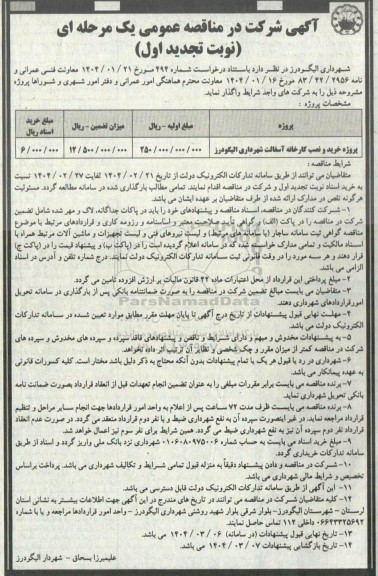 آگهی شرکت در مناقصه عمومی یک مرحله ای
(نوبت تجدید اول)
شهرداری الیگودرز در نظر دارد باستناد درخواست شماره ۴۹۲ مورخ ۱۴۰۴/۰۱/۲۱ معاونت فنی عمرانی و
نامه ۸۳/۴۲/۲۹۵۶ مورخ ۱۴۰۴/۰۱/۱۶ معاونت محترم هماهنگی امور عمرانی و دفتر امور شهری و شوراها پروژه
مشروحه ذیل را به شرکت های واجد شرایط واگذار نماید.
مشخصات پروژه :
پروژه
مبلغ اولیه - ریال
میزان تضمین - ریال
مبلغ خرید اسناد ریال
پروژه خرید و نصب کارخانه آسفالت شهرداری الیگودرز
۲۵۰/۰۰۰/۰۰۰/۰۰۰
۱۲/۵۰۰/۰۰۰/۰۰۰
۶/۰۰۰/۰۰۰
شرایط مناقصه :
متقاضیان می توانند از طریق سامانه تدارکات الکترونیک دولت از تاریخ ۱۴۰۴/۰۲/۲۱ لغایت ۱۴۰۴/۰۲/۲۷ نسبت
به خرید اسناد نوبت تجدید اول و شرکت در مناقصه اقدام نمایند. تمامی مطالب بارگذاری شده در سامانه مطالعه گردد. مسئولیت
هرگونه نقص در مدارک ارائه شده از طرف متقاضیان بر عهده ایشان می باشد.
۱- شرکت کنندگان در مناقصه، اسناد مناقصه و پیشنهادهای خود را باید در پاکات جداگانه، لاک و مهر شده شامل تضمین
شرکت در مناقصه را در پاکت (الف) و گواهی تأیید صلاحیت معتبر و اساسنامه و رزومه کاری و قراردادهای مرتبط با موضوع
مناقصه گواهی ثبت سامانه ساجار (یا سامانه های مرتبط) و لیست نیروهای فنی و لیست تجهیزات و ماشین آلات مرتبط همراه با
اسناد مالکیت و تمامی مدارک خواسته شده که در سامانه اعلام گردیده است را در (پاکت ب) و پیشنهاد قیمت را در (پاکت ج)
قرار دهند و هر سه مورد را در وقت قانونی ثبت سامانه تدارکات الکترونیک دولت نمایند. درج شماره تلفن و آدرس در اسناد
الزامی می باشد.
۲- مبلغ پرداختی این قرارداد از محل اعتبارات ماده ۴۲ قانون مالیات بر ارزش افزوده تأمین می گردد.
۳- متقاضیان می بایست مبالغ تضمین شرکت در مناقصه را به صورت ضمانتنامه بانکی پس از بارگذاری در سامانه تحویل
امور قراردادهای شهرداری دهند.
۴- مهلت نهایی قبول پیشنهادات از تاریخ درج آگهی تا پایان مهلت مقرر مطابق موارد تعیین شده در سامانه تدارکات
الکترونیک دولت می باشد.
۵- به پیشنهادات مخدوش و مبهم و دارای شرایط و ناقص و پیشنهادهای فاقد سپرده و سپرده های مخدوش و سپرده های
شرکت در مناقصه کمتر از میزان مقرر و چک شخصی و نظایر آن ترتیب اثر داده نخواهد.
۶- شهرداری در رد یا قبول هر یک یا تمام پیشنهادات بدون آنکه محتاج به ذکر دلیل باشد مختار است. کلیه کسورات قانونی
به عهده پیمانکار می باشد.
۷- برنده مناقصه می بایست برابر مقررات مبلغی را به عنوان تضمین انجام تعهدات قبل از انعقاد قرارداد بصورت ضمانت نامه
بانکی تحویل شهرداری نماید.
۸- برنده مناقصه می بایست ظرف مدت ۷۲ ساعت پس از اعلام به واحد امور قراردادها جهت انجام سایر مراحل و تنظیم
قرارداد مراجعه نماید. در غیر اینصورت سپرده آن به نفع شهرداری ضبط و با نفر دوم قرارداد منعقد می گردد. در صورت عدم انعقاد
قرارداد نفر دوم سپرده آن نیز به نفع شهرداری ضبط می گردد. همین شرایط برای نفر سوم نیز اعمال خواهد شد.
۹- مبلغ خرید اسناد می بایست به حساب شماره ۰۱۰۶۰۸۰۹۷۵۰۰۶ شهرداری نزد بانک ملی واریز گردد و اسناد از طریق
سامانه تدارکات خریداری گردد.
۱۰- شرکت در مناقصه و دادن پیشنهاد دقیقاً به منزله قبول تمامی شرایط و تکالیف شهرداری می باشد. پرداخت براساس
تخصیص و شرایط مالی شهرداری می باشد.
۱۱- این آگهی از طریق سامانه تدارکات الکترونیک دولت قابل دسترسی می باشد.
۱۲- کلیه متقاضیان شرکت در مناقصه می توانند در تاریخ های مندرج در این آگهی جهت اطلاعات بیشتر به نشانی استان
لرستان - شهرستان الیگودرز- بلوار شرقی بلوار شهید روشنی شهرداری الیگودرز - واحد امور قراردادها مراجعه و یا با شماره
۰۶۶۴۳۳۲۵۶۹۲ داخلی ۱۱۲ تماس حاصل نمایند.
۱۳- تاریخ نهایی قبول پیشنهادات (در سامانه) ۱۴۰۴/۰۳/۰۶ می باشد.
۱۴- تاریخ بازگشایی پیشنهادات ۱۴۰۴/۰۳/۰۷ می باشد.
علیمیرزا بسحاق - شهردار الیگودرز
ParsNamadData